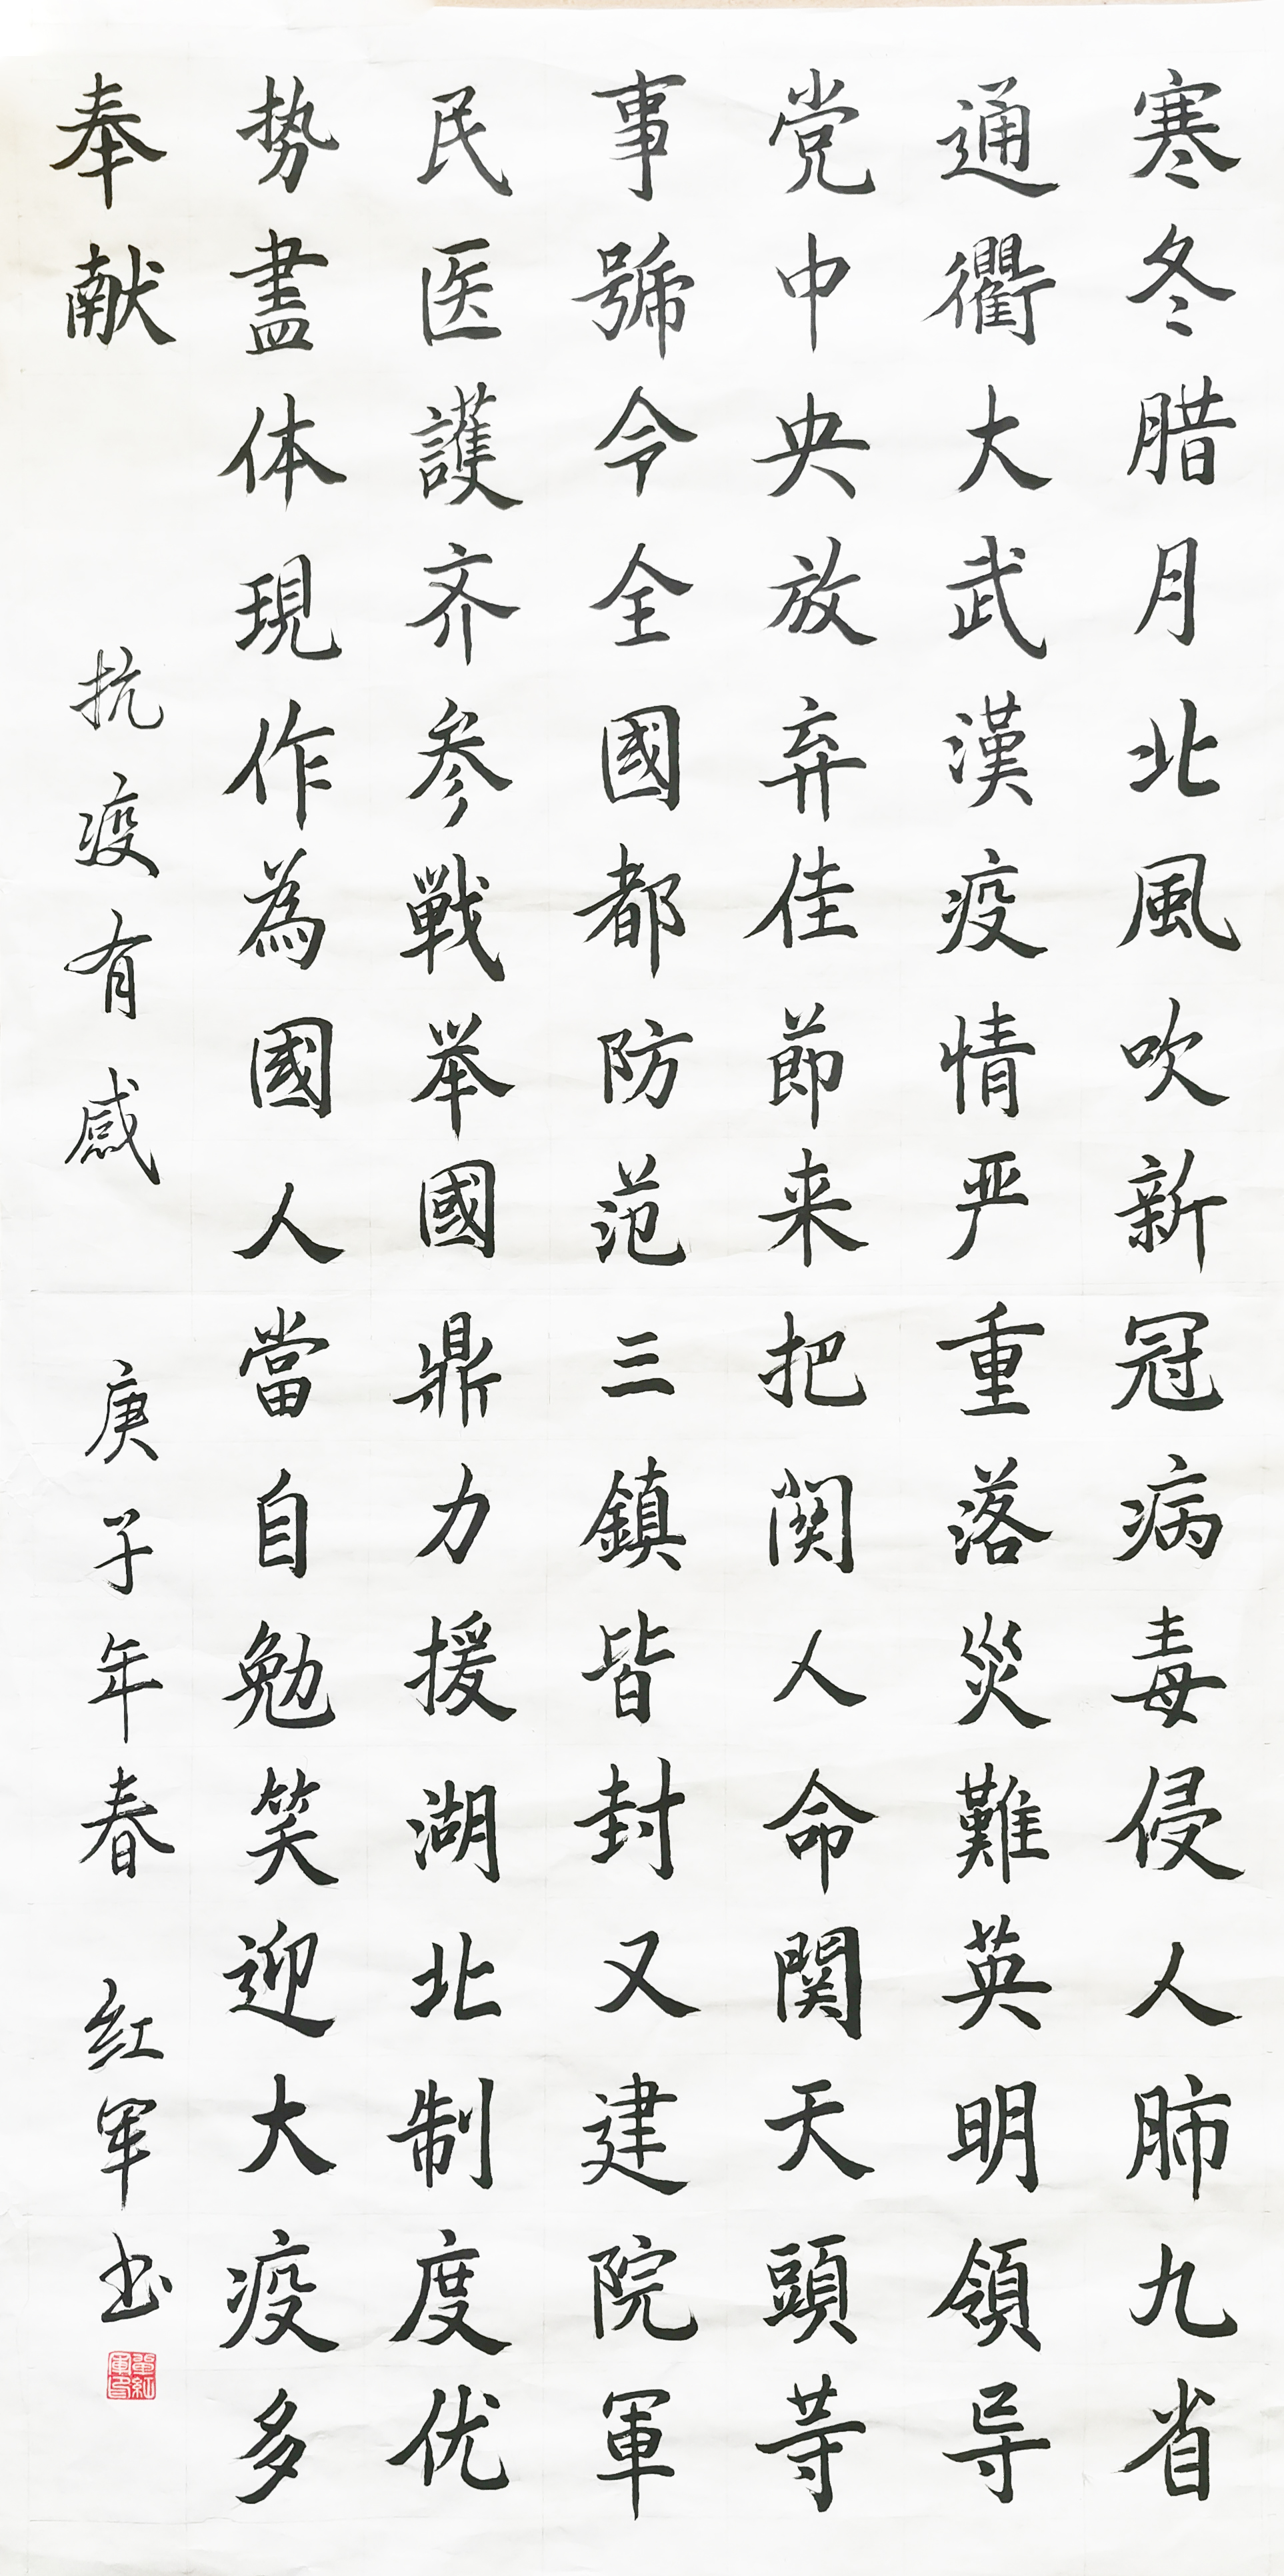 寒冬腊月北風吹新冠病毒侵人肺九省
通衢大武漢疫情严重落災難英明領导
党中央放弃佳節来把関人命関天頭等
事號令全國都防范三鎮皆封又建院軍
民医護齐参戰举國鼎力援湖北制度优
势盡体現作為國人當自勉笑迎大疫多
奉献
抗疫有感
庚子年春
红军书